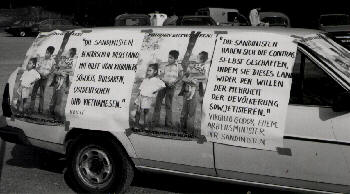 "DIE SANDINISTEN
NICARAGUA
MIT HILFE VON KUBANERN,
SOWJETS, BULGAREN,
OSTDEUTSCHEN
UND VIETNAMESEN."
"DIE SANDINISTEN
HABEN SICH DIE CONTRAS
SELBST GESCHAFFEN,
INDEM SIE DIESES LAND
WIDER DEN WILLEN
DER MEHRHEIT
DER BEVÖLKERUNG
SOWJETISIEREN."
VIRGILIO GODOY, EHEM.
ARBEITSMINISTER
DER SANDINISTEN